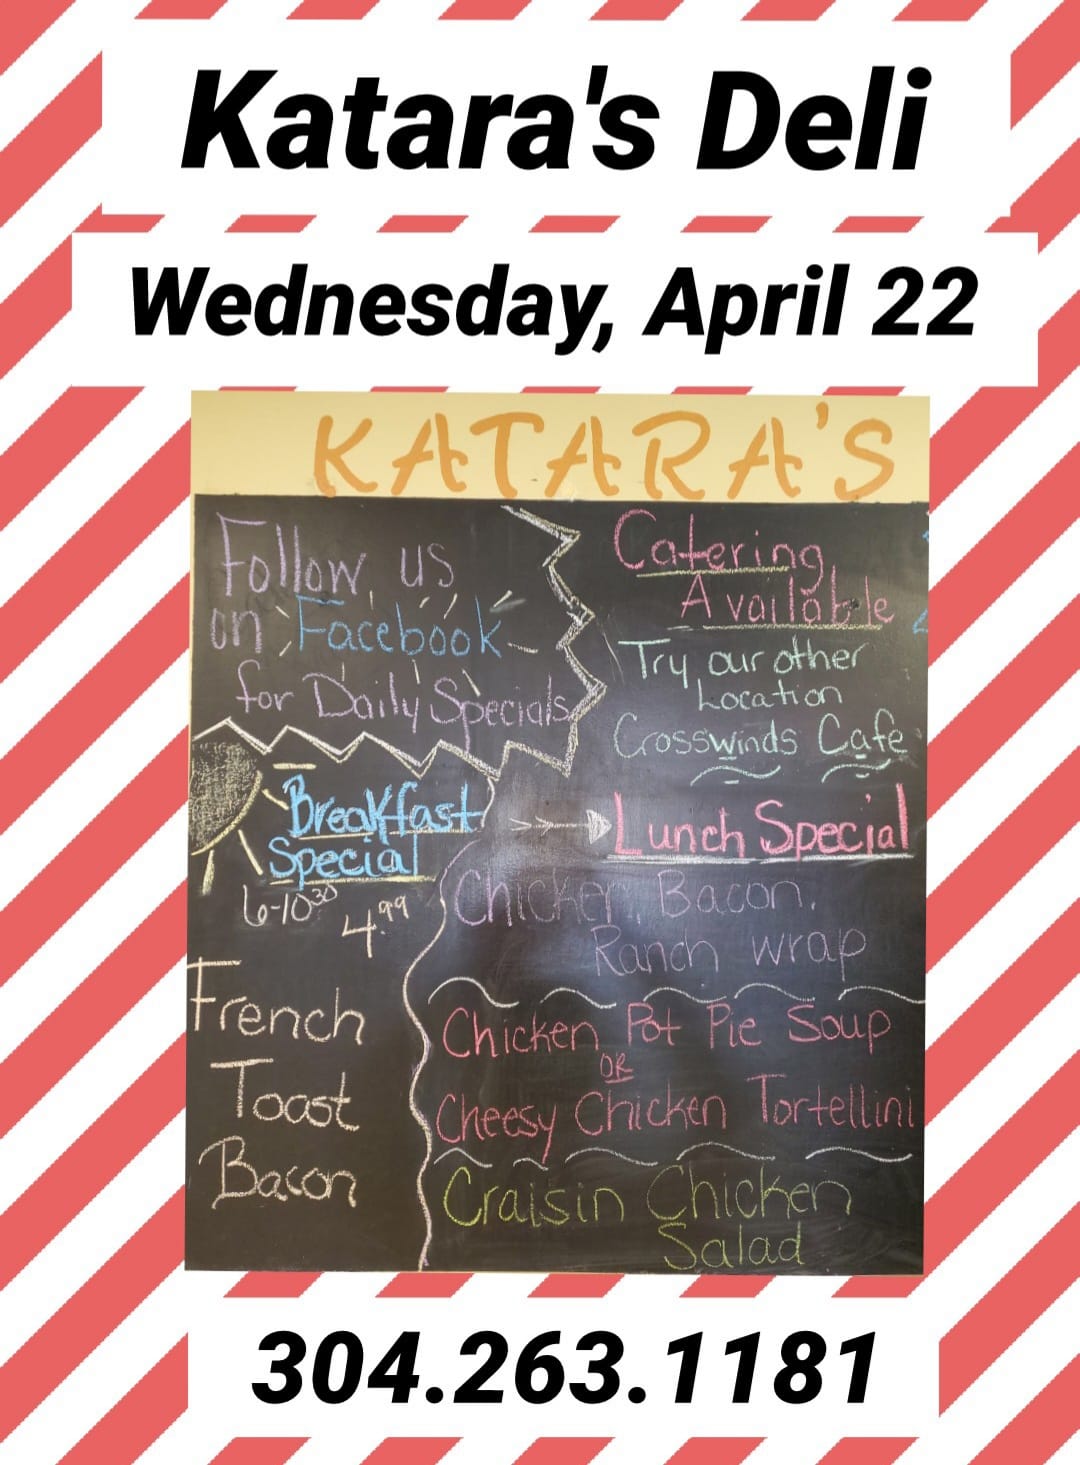 Katara's Deli
Wednesday, April 22
KATARA'S
Follow us
on Facebook
for Daily Specials
Catering
Available
Try our other
Location
Crosswinds Cafe
Breakfast
Special
6-10³⁰ 4.⁹⁹
French
Toast
Bacon
Lunch Special
Chicken, Bacon,
Ranch wrap
Chicken Pot Pie Soup
OR
Cheesy Chicken Tortellini
Craisin Chicken
Salad
304.263.1181